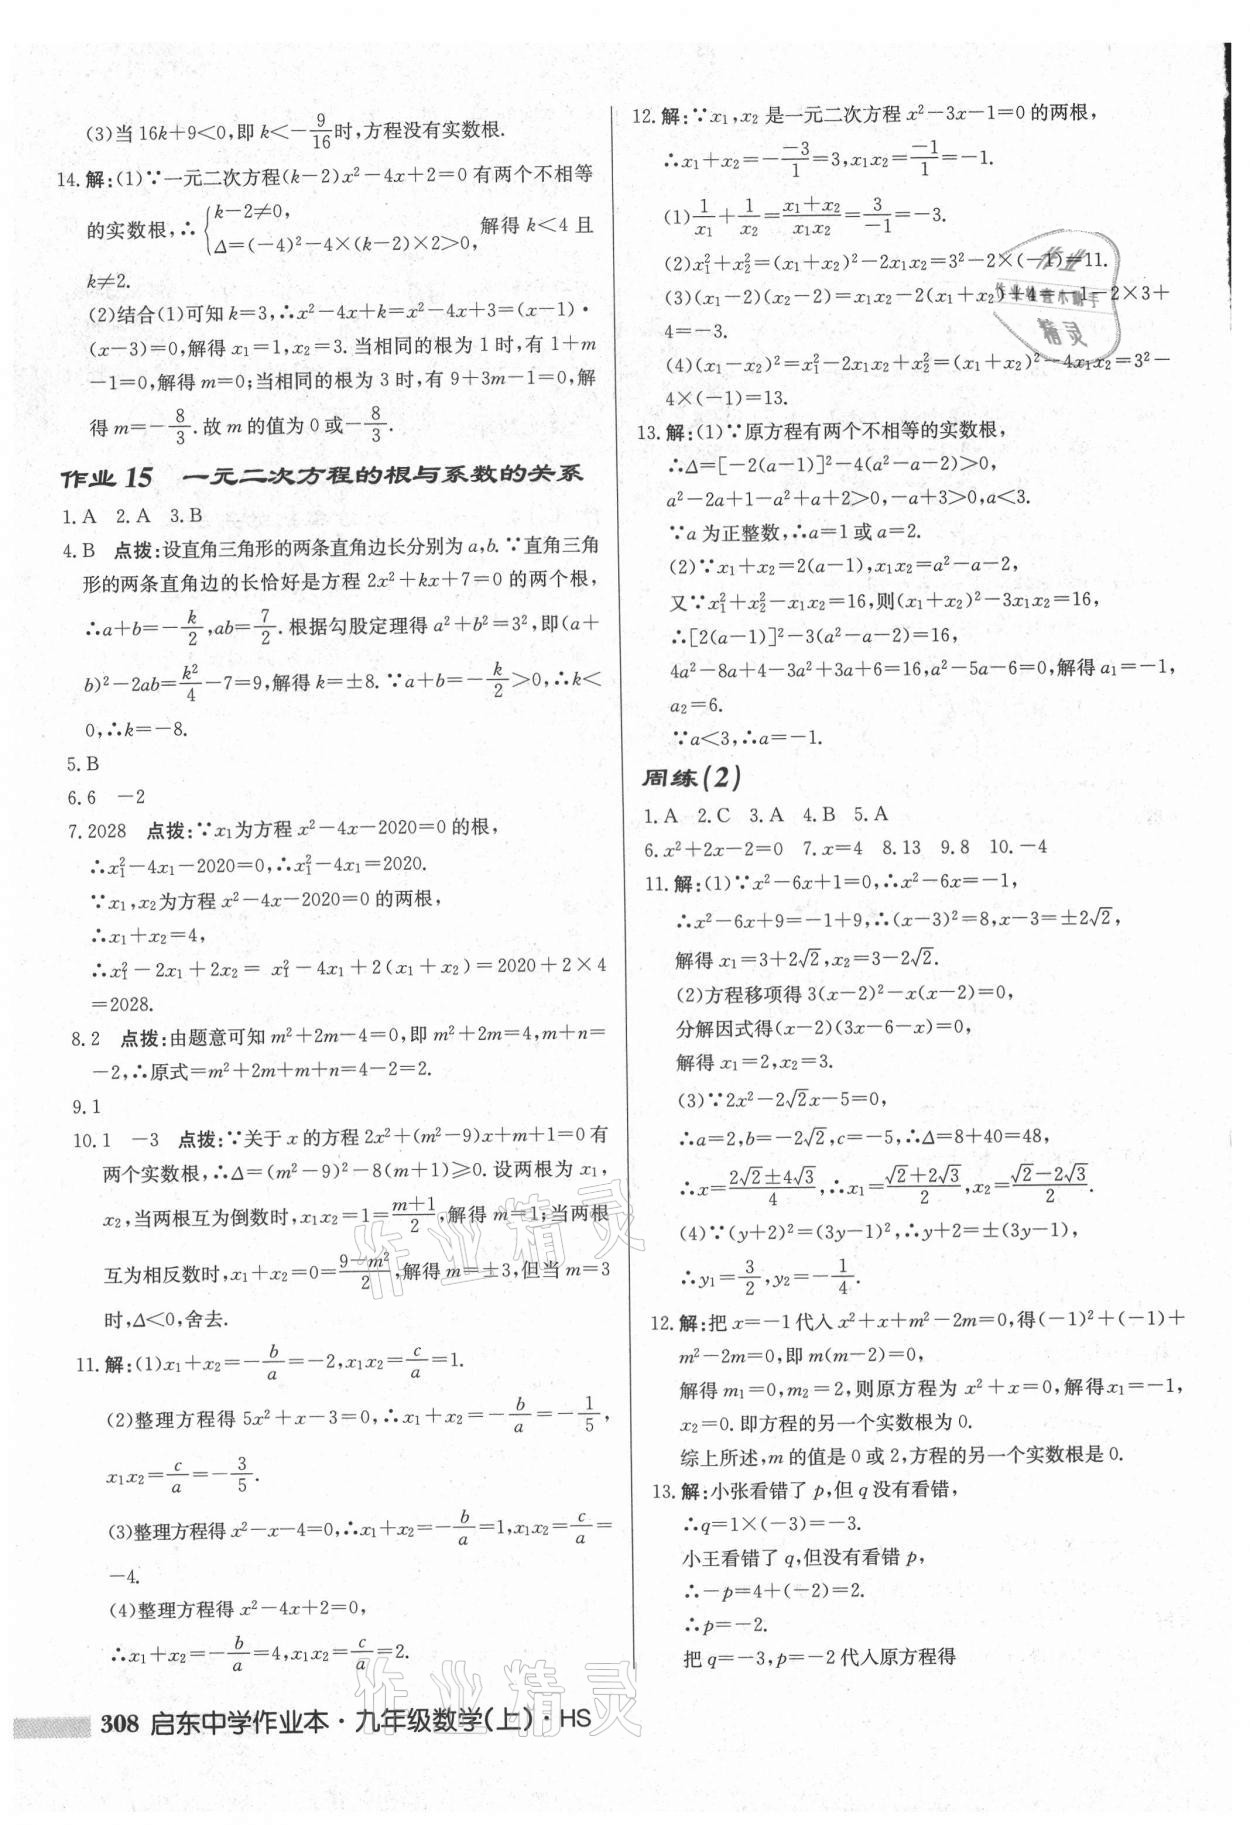 (3)当 16k+9<0,即 k<-9/16时,方程没有实数根.
14.解:(1)∵一元二次方程(k-2)x²-4x+2=0 有两个不相等
的实数根,∴{k-2≠0, Δ=(-4)²-4×(k-2)×2>0, 解得 k<4 且
k≠2.
(2)结合(1)可知 k=3,∴x²-4x+k=x²-4x+3=(x-1)·
(x-3)=0,解得 x₁=1,x₂=3.当相同的根为 1 时,有 1+m
-1=0,解得 m=0;当相同的根为 3 时,有 9+3m-1=0,解
得 m=-8/3.故 m 的值为 0 或-8/3.
作业 15 一元二次方程的根与系数的关系
1.A 2.A 3.B
4.B 点拨:设直角三角形的两条直角边长分别为 a,b.∵直角三角
形的两条直角边的长恰好是方程 2x²+kx+7=0 的两个根,
∴a+b=-k/2,ab=7/2.根据勾股定理得 a²+b²=3²,即(a+
b)²-2ab=k²/4-7=9,解得 k=±8.∵a+b=-k/2>0,∴k<
0,∴k=-8.
5.B
6.6 -2
7.2028 点拨:∵x₁为方程 x²-4x-2020=0 的根,
∴x₁²-4x₁-2020=0,∴x₁²-4x₁=2020.
∵x₁,x₂为方程 x²-4x-2020=0 的两根,
∴x₁+x₂=4,
∴x₁²-2x₁+2x₂= x₁²-4x₁+2(x₁+x₂)=2020+2×4
=2028.
8.2 点拨:由题意可知 m²+2m-4=0,即 m²+2m=4,m+n=
-2,∴原式=m²+2m+m+n=4-2=2.
9.1
10.1 -3 点拨:∵关于 x 的方程 2x²+(m²-9)x+m+1=0 有
两个实数根,∴Δ=(m²-9)²-8(m+1)≥0.设两根为 x₁,
x₂,当两根互为倒数时,x₁x₂=1=(m+1)/2,解得 m=1;当两根
互为相反数时,x₁+x₂=0=(9-m²)/2,解得 m=±3,但当 m=3
时,Δ<0,舍去.
11.解:(1)x₁+x₂=-b/a=-2,x₁x₂=c/a=1.
(2)整理方程得 5x²+x-3=0,∴x₁+x₂=-b/a=-1/5,
x₁x₂=c/a=-3/5.
(3)整理方程得 x²-x-4=0,∴x₁+x₂=-b/a=1,x₁x₂=c/a=
-4.
(4)整理方程得 x²-4x+2=0,
∴x₁+x₂=-b/a=4,x₁x₂=c/a=2.
308 启东中学作业本·九年级数学(上)·HS
12.解:∵x₁,x₂ 是一元二次方程 x²-3x-1=0 的两根,
∴x₁+x₂=-(-3)/1=3,x₁x₂=-1/1=-1.
(1)1/x₁+1/x₂=(x₁+x₂)/(x₁x₂)=3/-1=-3.
(2)x₁²+x₂²=(x₁+x₂)²-2x₁x₂=3²-2×(-1)=11.
(3)(x₁-2)(x₂-2)=x₁x₂-2(x₁+x₂)+4=-1-2×3+
4=-3.
(4)(x₁-x₂)²=x₁²-2x₁x₂+x₂²=(x₁+x₂)²-4x₁x₂=3²-
4×(-1)=13.
13.解:(1)∵原方程有两个不相等的实数根,
∴Δ=[-2(a-1)]²-4(a²-a-2)>0,
a²-2a+1-a²+a+2>0,-a+3>0,a<3.
∵a 为正整数,∴a=1或 a=2.
(2)∵x₁+x₂=2(a-1),x₁x₂=a²-a-2,
又∵x₁²+x₂²-x₁x₂=16,则(x₁+x₂)²-3x₁x₂=16,
∴[2(a-1)]²-3(a²-a-2)=16,
4a²-8a+4-3a²+3a+6=16,a²-5a-6=0,解得 a₁=-1,
a₂=6.
∵a<3,∴a=-1.
周练(2)
1.A 2.C 3.A 4.B 5.A
6.x²+2x-2=0 7.x=4 8.13 9.8 10.-4
11.解:(1)∵x²-6x+1=0,∴x²-6x=-1,
∴x²-6x+9=-1+9,∴(x-3)²=8,x-3=±2√2,
解得 x₁=3+2√2,x₂=3-2√2.
(2)方程移项得 3(x-2)²-x(x-2)=0,
分解因式得(x-2)(3x-6-x)=0,
解得 x₁=2,x₂=3.
(3)∵2x²-2√2x-5=0,
∴a=2,b=-2√2,c=-5,∴Δ=8+40=48,
∴x=(2√2±4√3)/4,∴x₁=(√2+2√3)/2,x₂=(√2-2√3)/2.
(4)∵(y+2)²=(3y-1)²,∴y+2=±(3y-1),
∴y₁=3/2,y₂=-1/4.
12.解:把 x=-1代入 x²+x+m²-2m=0,得(-1)²+(-1)+
m²-2m=0,即 m(m-2)=0,
解得 m₁=0,m₂=2,则原方程为 x²+x=0,解得x₁=-1,
x₂=0.即方程的另一个实数根为 0.
综上所述,m 的值是 0 或 2,方程的另一个实数根是 0.
13.解:小张看错了 p,但 q没有看错,
∴q=1×(-3)=-3.
小王看错了 q,但没有看错 p,
∴-p=4+(-2)=2.
∴p=-2.
把 q=-3,p=-2代入原方程得
作业精灵
作业精灵
作业
精灵